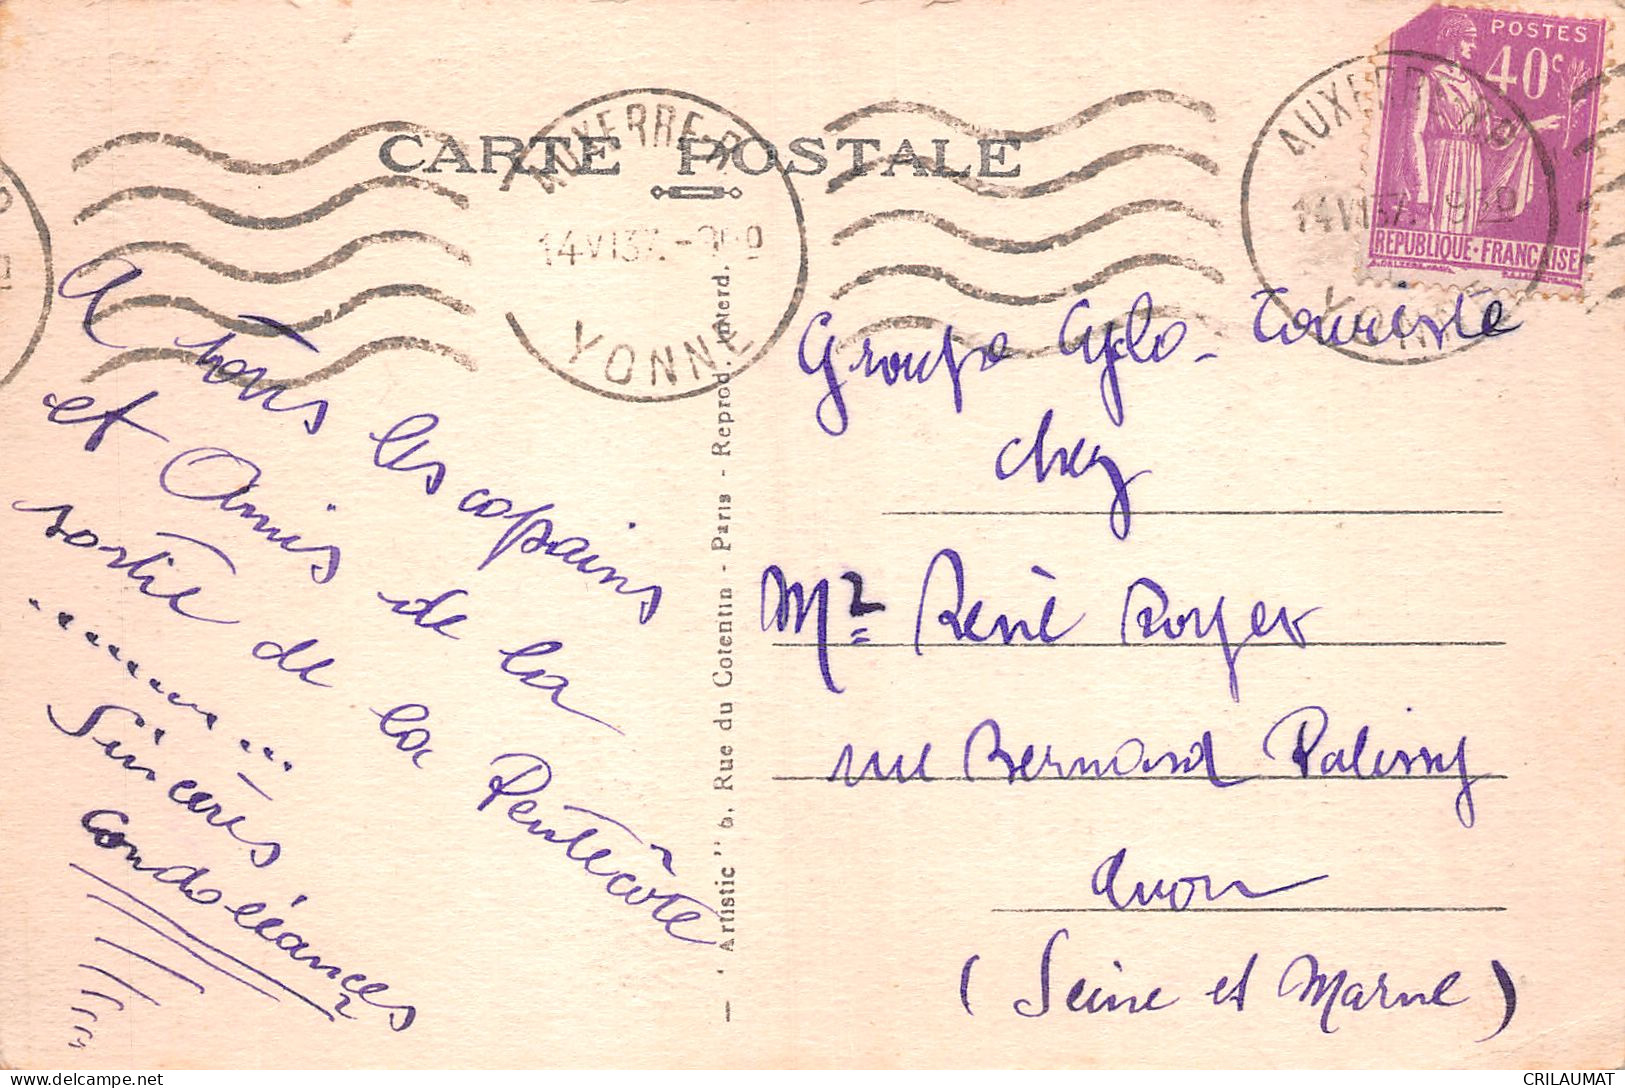 CARTE POSTALE
POSTES
40c
REPUBLIQUE-FRANÇAISE
AUXERRE
14 VI 37
YONNE
AUXERRE
14 VI 37. 930
YONNE
A tous les copains
et Amis de la
sortie de la Pentecôte
.....................
Sincères
condoléances
"Artistic" 6, Rue du Cotentin - Paris - Reprod. Interd.
Groupe Cyclo-Touriste
chez
Mr René Royer
rue Bernard Palissy
Avon
(Seine et Marne)
CRILAUMAT